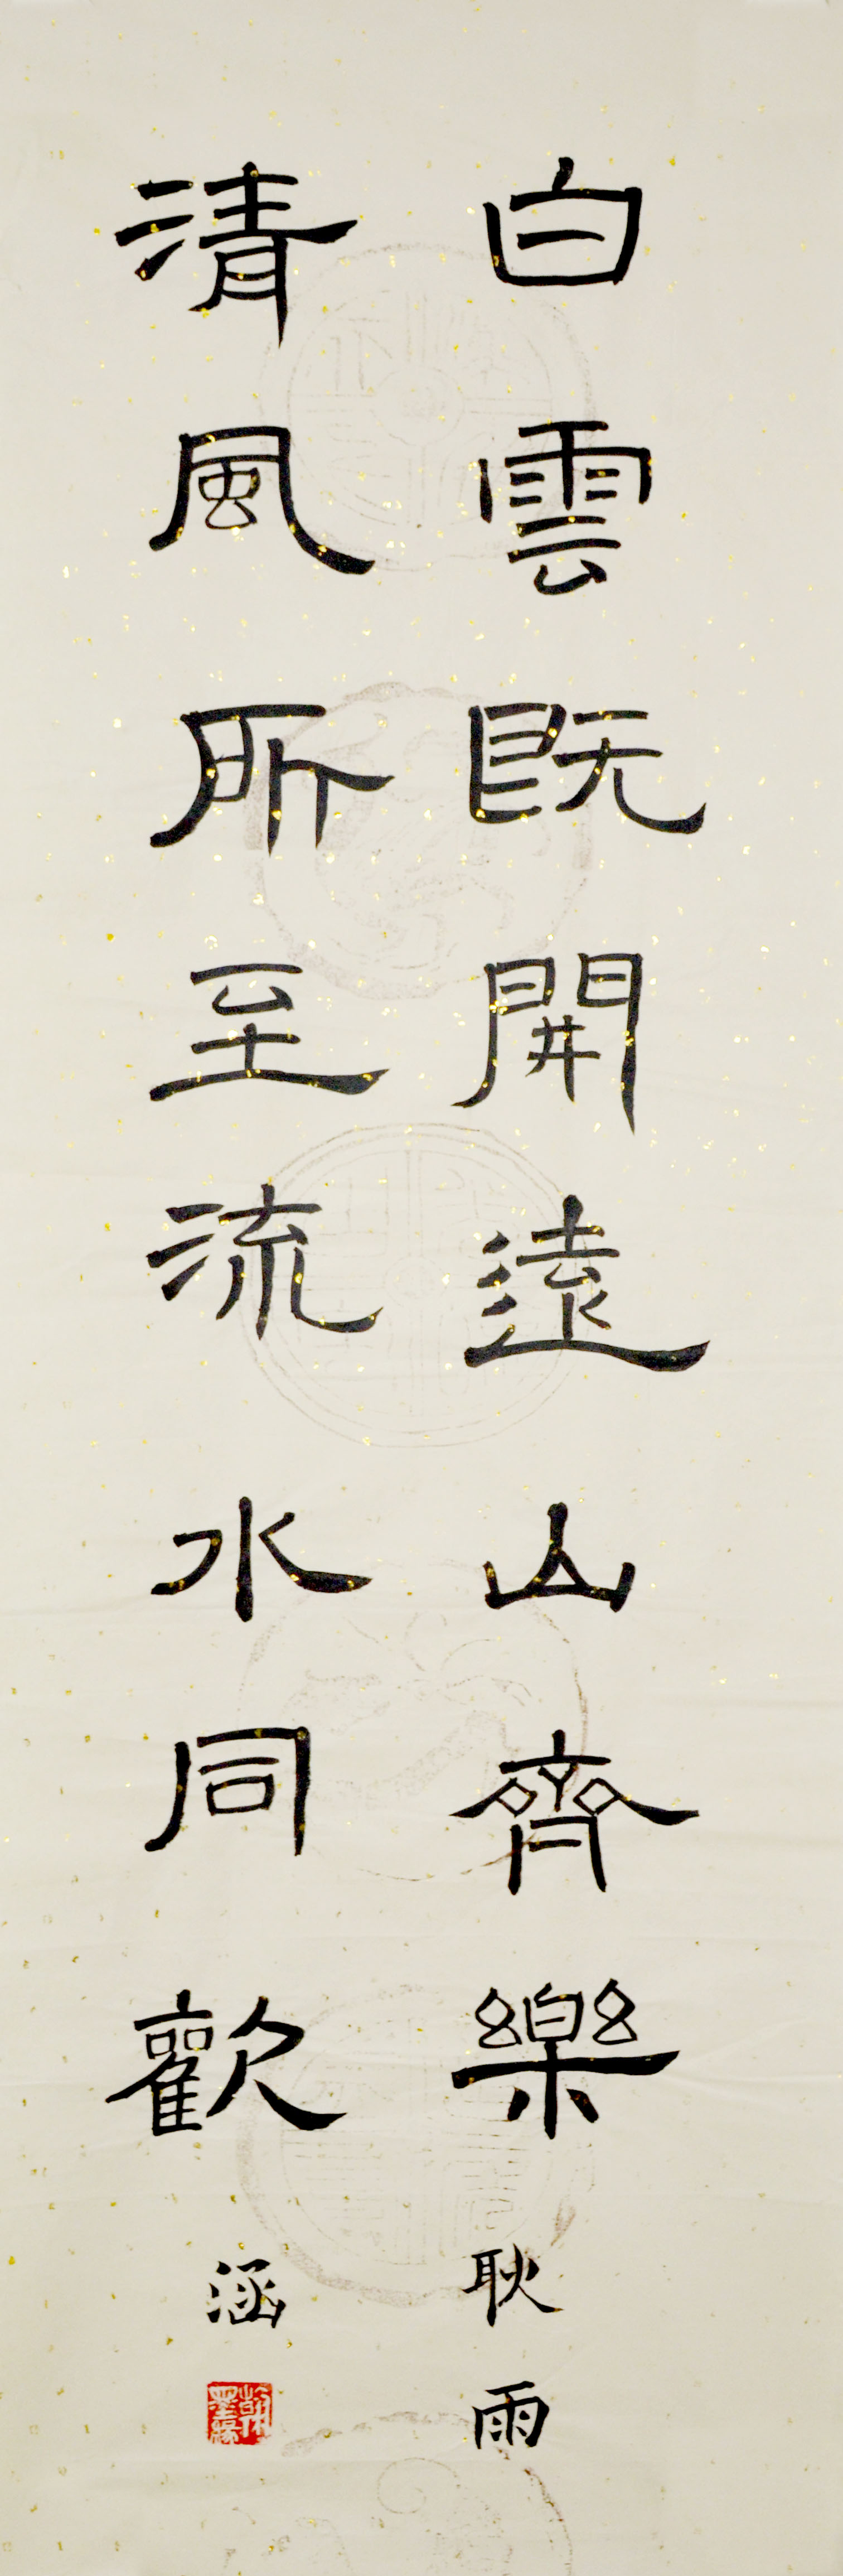 白雲既開遠山齊樂
耿雨
清風所至流水同歡
涵